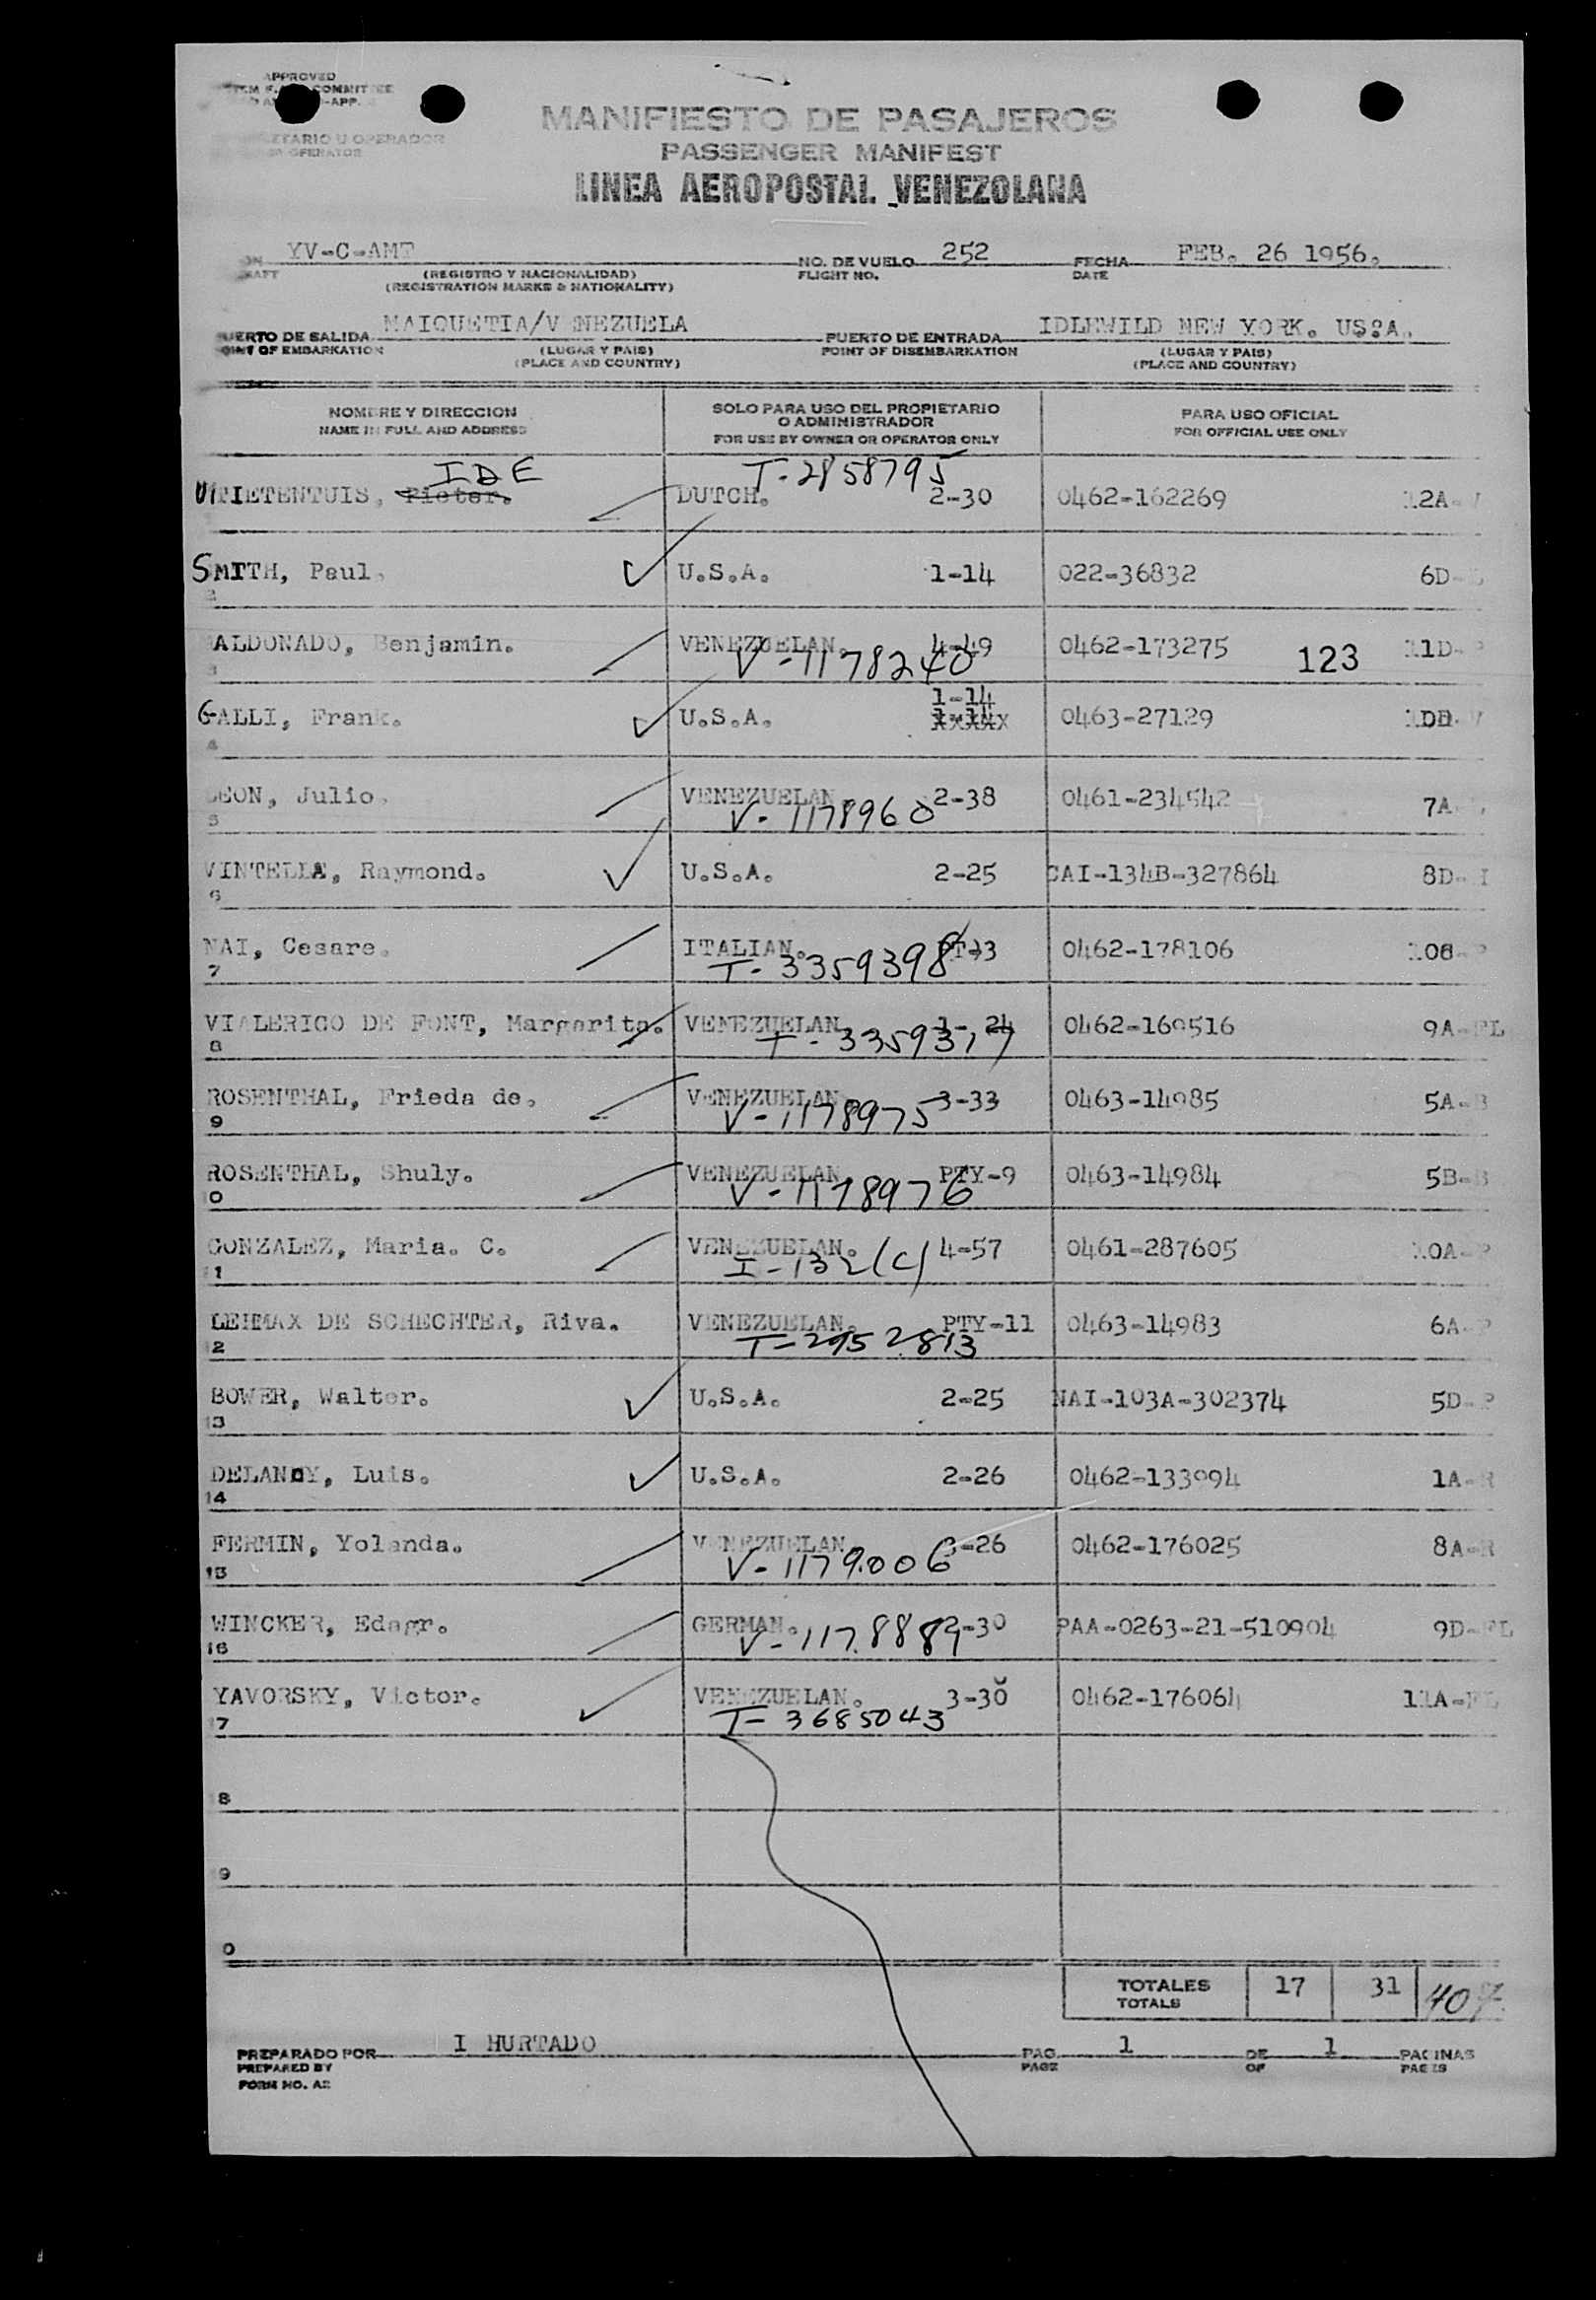 APPROVED
COMMITTEE
-APP.
ETARIO U OPERADOR
OPERATOR
MANIFIESTO DE PASAJEROS
PASSENGER MANIFEST
LINEA AEROPOSTAL VENEZOLANA
YV-C-AMT
(REGISTRO Y NACIONALIDAD)
(REGISTRATION MARKS & NATIONALITY)
NO. DE VUELO 252
FLIGHT NO.
FECHA FEB. 26 1956.
DATE
PUERTO DE SALIDA MAIQUETIA/VENEZUELA
POINT OF EMBARKATION
(LUGAR Y PAIS)
(PLACE AND COUNTRY)
PUERTO DE ENTRADA IDLEWILD NEW YORK. US.A.
POINT OF DISEMBARKATION
(LUGAR Y PAIS)
(PLACE AND COUNTRY)
NOMBRE Y DIRECCION
NAME IN FULL AND ADDRESS
SOLO PARA USO DEL PROPIETARIO
O ADMINISTRADOR
FOR USE BY OWNER OR OPERATOR ONLY
PARA USO OFICIAL
FOR OFFICIAL USE ONLY
IDE T-2858795
UITIETENTUIS, Pieter. DUTCH. 2-30 0462-162269 12A-
SMITH, Paul. U.S.A. 1-14 022-36832 6D-
2
ALDONADO, Benjamin. VENEZUELAN. 4-49 0462-173275 123 11D-
V-1178240
3
1-14
GALLI, Frank. U.S.A. 0463-27129 1DD-
4
LEON, Julio. VENEZUELAN 2-38 0461-234542 7A-
V-1178960
5
VINTELLA, Raymond. U.S.A. 2-25 CAI-134B-327864 8D-
6
NAI, Cesare. ITALIAN. PT-3 0462-178106 10
T-3359398
7
VIALERICO DE FONT, Margarita. VENEZUELAN 1-24 0462-169516 9A-FL
T-3359317
8
ROSENTHAL, Frieda de. VENEZUELAN 3-33 0463-14985 5A-B
V-1178975
9
ROSENTHAL, Shuly. VENEZUELAN PTY-9 0463-14984 5B-B
V-1178976
0
GONZALEZ, Maria. C. VENEZUELAN. 4-57 0461-287605 10A-P
I-132(C)
11
LEHMAX DE SCHECHTER, Riva. VENEZUELAN. PTY-11 0463-14983 6A-P
T-2952813
12
BOWER, Walter. U.S.A. 2-25 NAI-103A-302374 5D-P
13
DELANOY, Luis. U.S.A. 2-26 0462-133994 1A-R
14
FERMIN, Yolanda. VENEZUELAN -26 0462-176025 8A-R
V-1179006
15
WINCKER, Edagr. GERMAN. 2-30 PAA-0263-21-510904 9D-FL
V-1178889
16
YAVORSKY, Victor. VENEZUELAN. 3-30 0462-176064 11A-FL
T-3685043
17
8
9
0
TOTALES 17 31 407
TOTALS
PREPARADO POR I HURTADO PAG. 1 DE 1 PAGINAS
PREPARED BY PAGE OF PAGES
FORM NO. A2